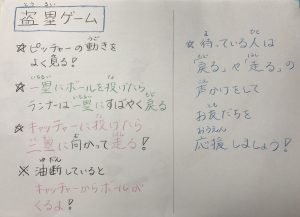 盗塁ゲーム
☆ピッチャーの動きを
よく見る!
☆一塁にボールを投げたら
ランナーは一塁にすばやく戻る
☆キャッチャーに投げたら
二塁に向かって走る!
※油断していると
キャッチャーからボールが
くるよ!
☆待っている人は
「戻る」や「走る」の
声かけをして
お友だちを
応援しましょう!